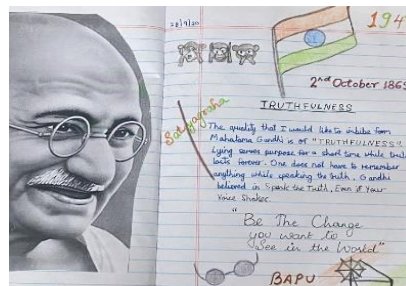 28/9/20
194
2nd October 1869
TRUTHFULNESS
Satyagraha
The quality that I would like to imbibe from
Mahatama Gandhi is of "TRUTHFULNESS".
Lying serves purpose for a short time while
lasts forever. One does not have to remember
anything while speaking the truth. Gandhi
believed in Speak the Truth, Even if Your
Voice Shakes.
"Be The Change
you want to
See in the World"
BAPU